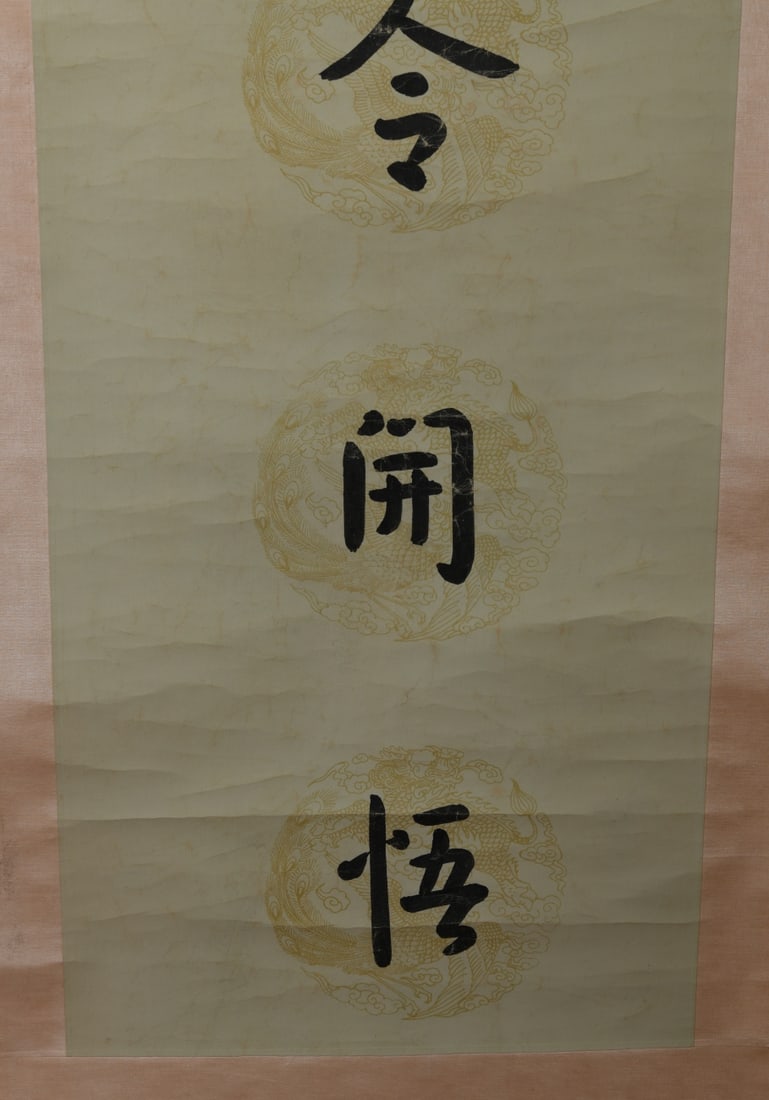 令開悟